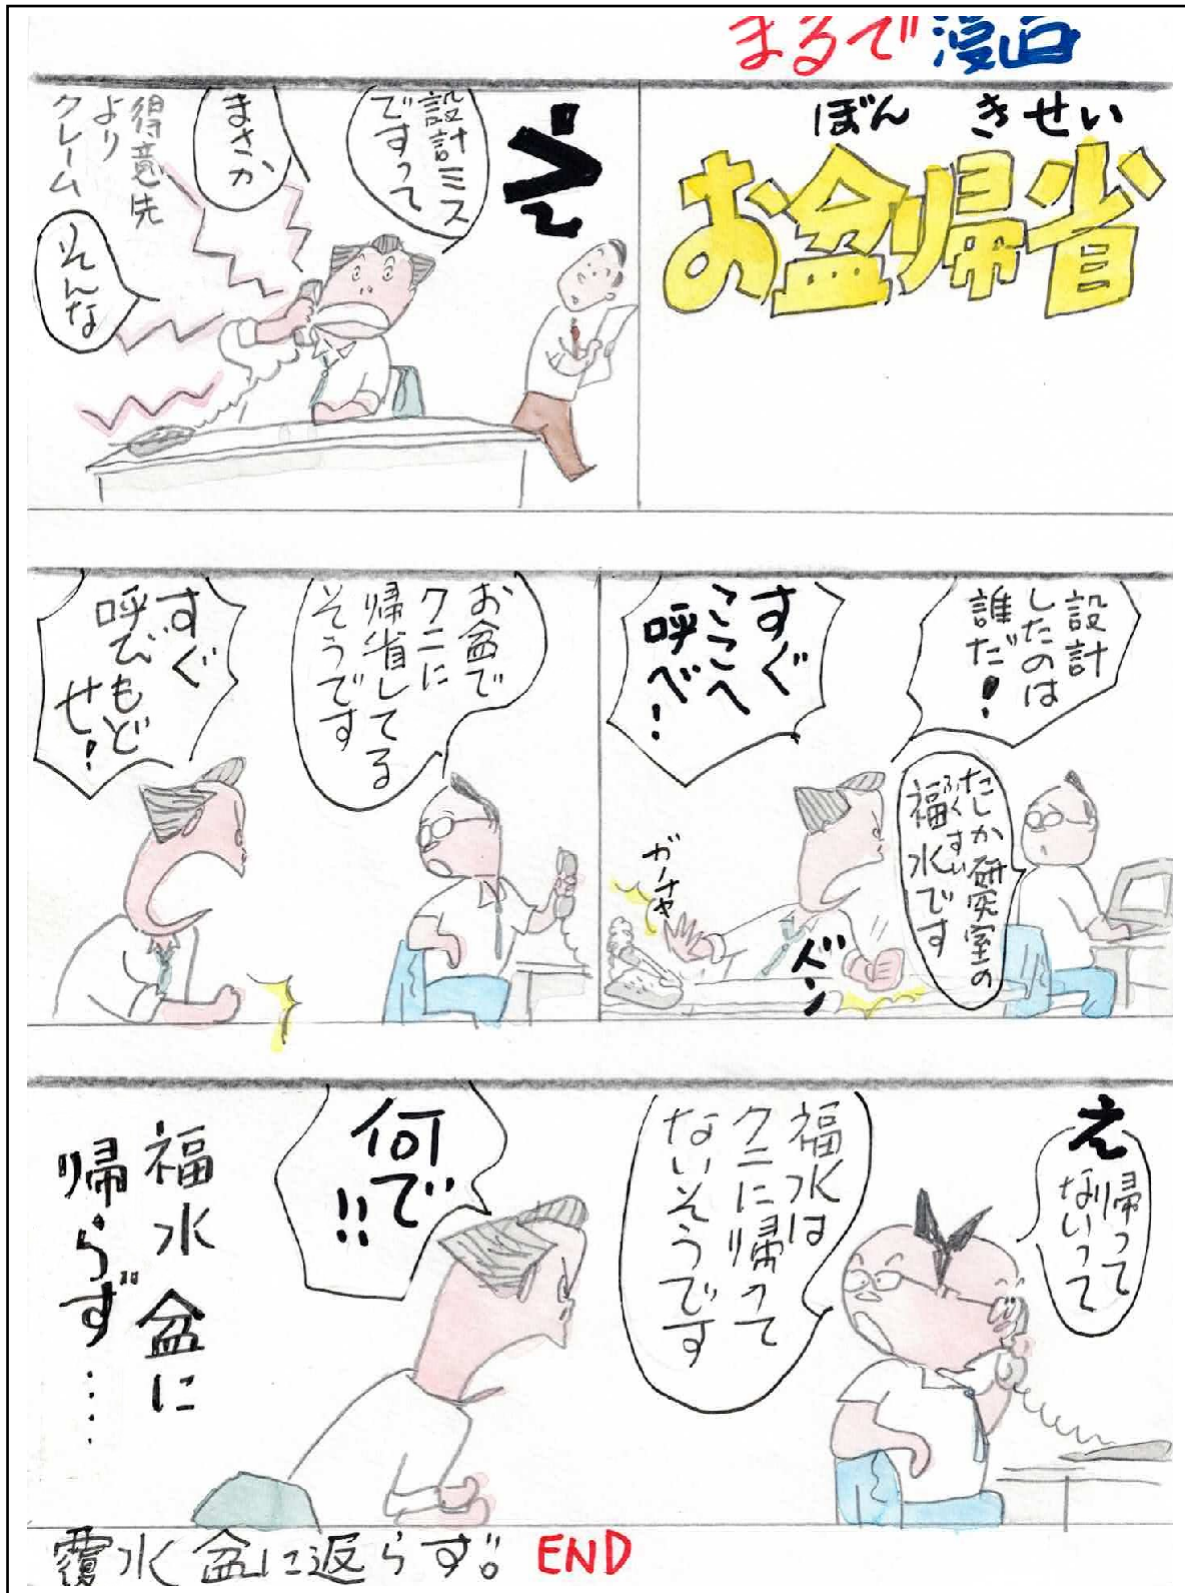 まるで漫画
ぼん きせい
お盆帰省
え
設計ミス
ですって
まさか
そんな
得意先
より
クレーム
設計
したのは
誰だ!
たしか研究室の
ふくすい
福水です
すぐ
ここへ
呼べ!
バン
ガーチャ
お盆で
クニに
帰省してる
そうです
すぐ
呼びもど
せ!
え
帰って
ないって
福水は
クニに帰って
ないそうです
何で
!!
福水 盆に
帰らず……
覆水盆に返らず。 END